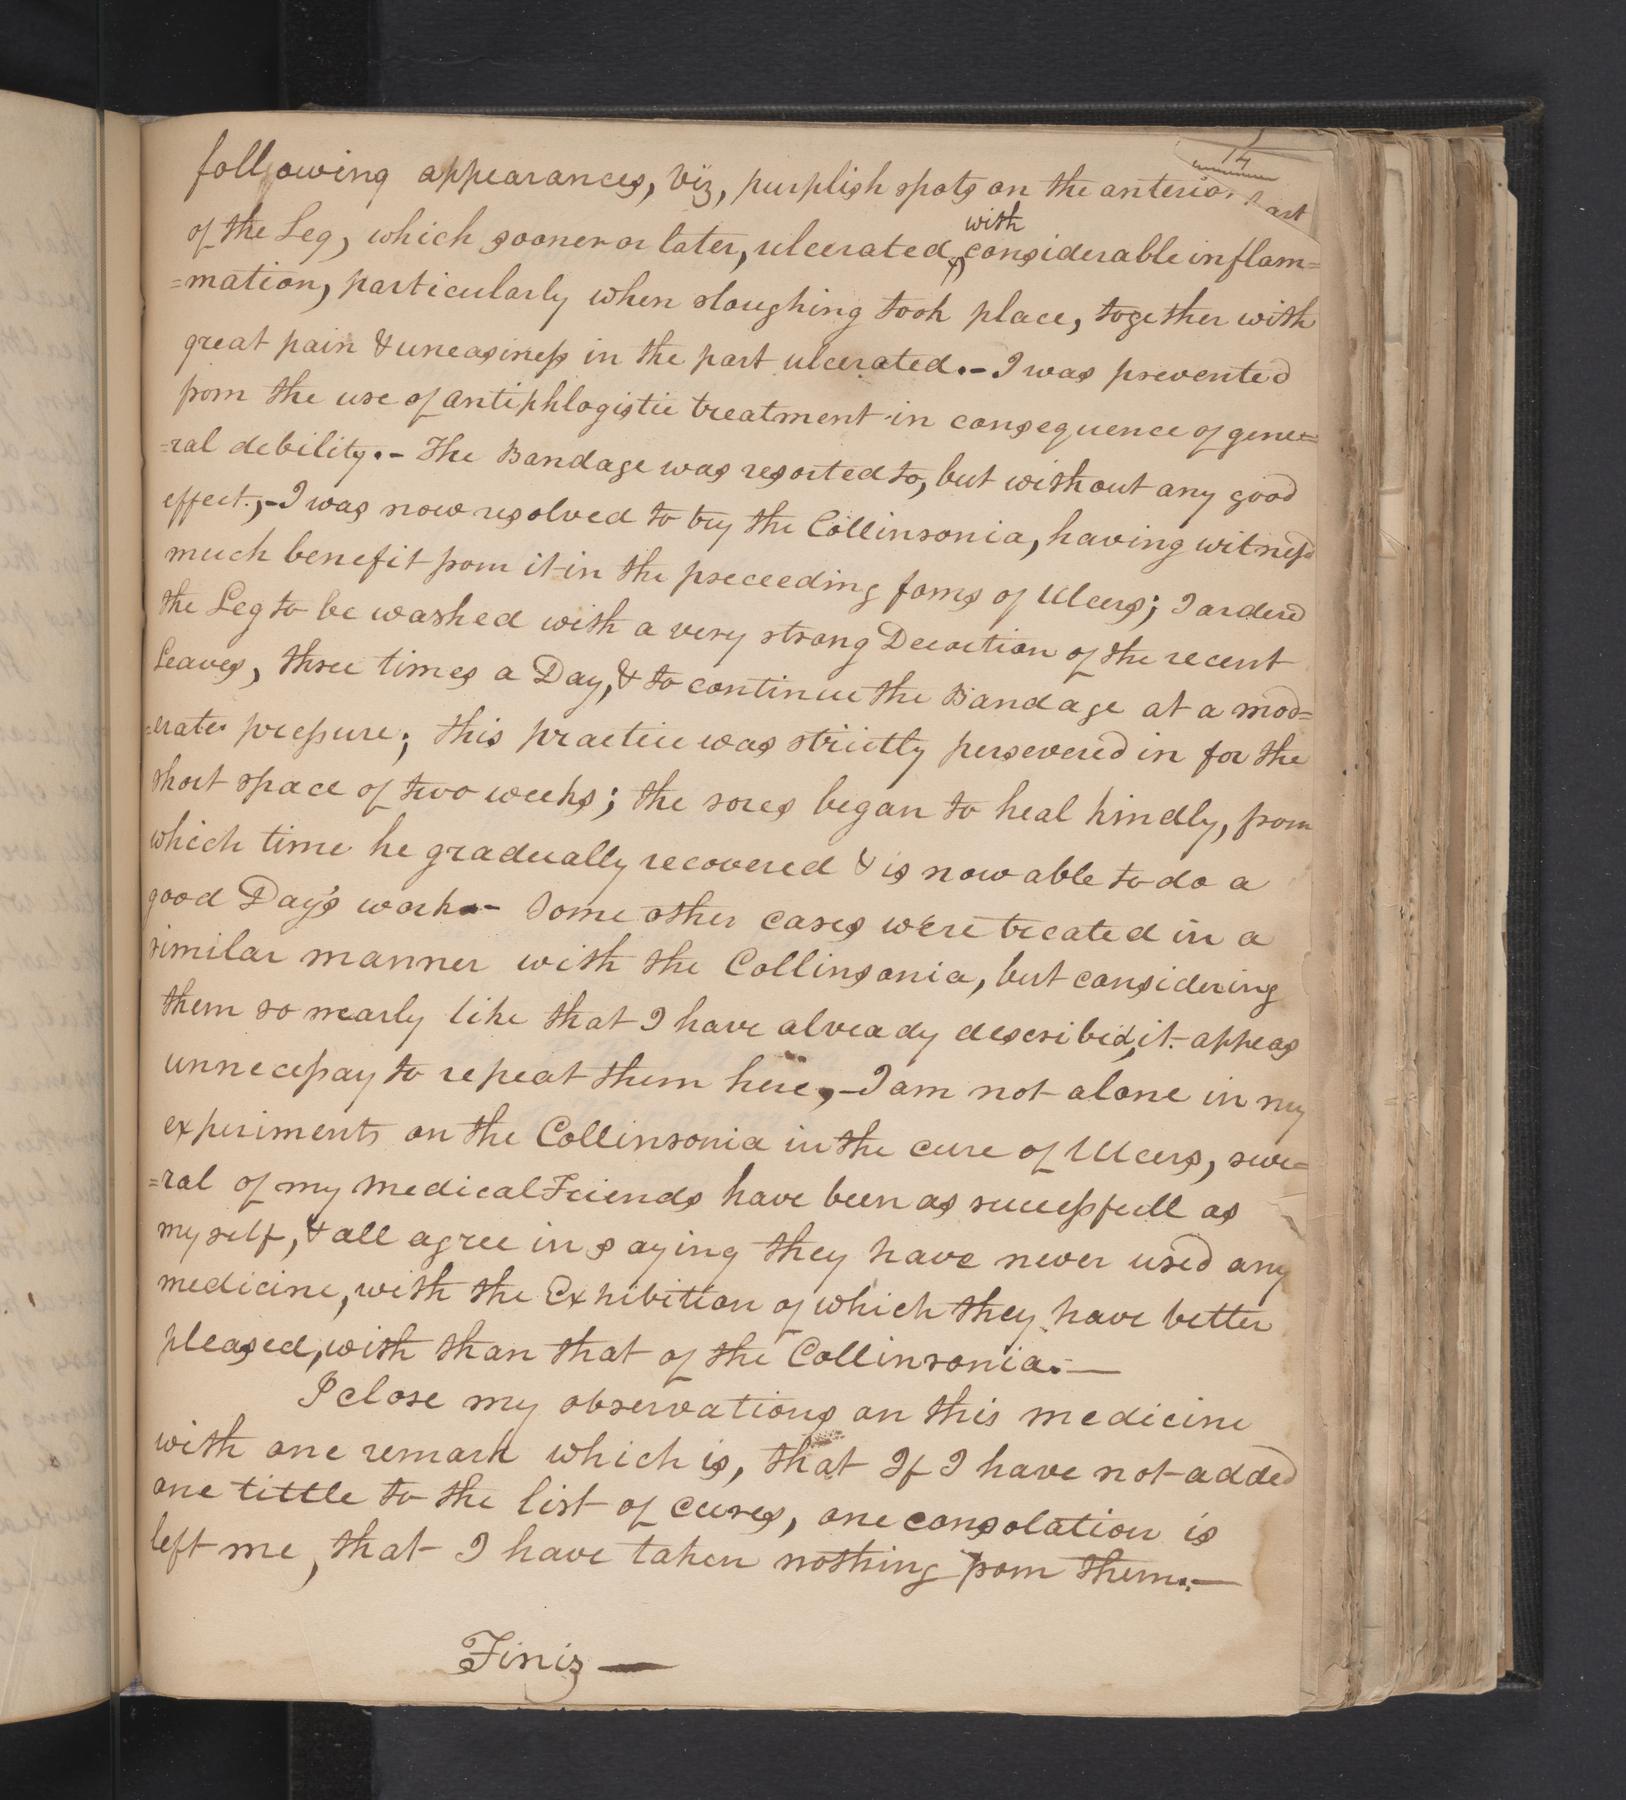 14
following appearances, viz, purplish spots on the anterior part
of the Leg, which sooner or later, ulcerated, with considerable inflam=
=mation, particularly when sloughing took place, together with
great pain & uneasiness in the part ulcerated.- I was prevented
from the use of antiphlogistic treatment in consequence of gene=
=ral debility.- The Bandage was resorted to, but without any good
effect.,- I was now resolved to try the Collinsonia, having witnessd
much benefit from it in the preceeding forms of Ulcers; I orderd
the Leg to be washed with a very strong Decoction of the recent
Leaves, three times a Day, & to continue the Bandage at a mod=
=erate pressure; this practice was strictly persevered in for the
short space of two weeks; the sores began to heal kindly, from
which time he gradually recovered & is now able to do a
good Day's work.- Some other cases were treated in a
similar manner with the Collinsonia, but considering
them so nearly like that I have already described, it appeas
unnecessay to repeat them here,- I am not alone in my
experiments on the Collinsonia in the cure of Ulcers, seve=
=ral of my medical Friends have been as successfull as
myself, & all agree in saying they have never used any
medicine, with the Exhibition of which they have better
pleased, with than that of the Collinsonia.-
I close my observations on this medicine
with one remark which is, that If I have not added
one tittle to the list of cures, one consolation is
left me, that I have taken nothing from them.-
Finis-